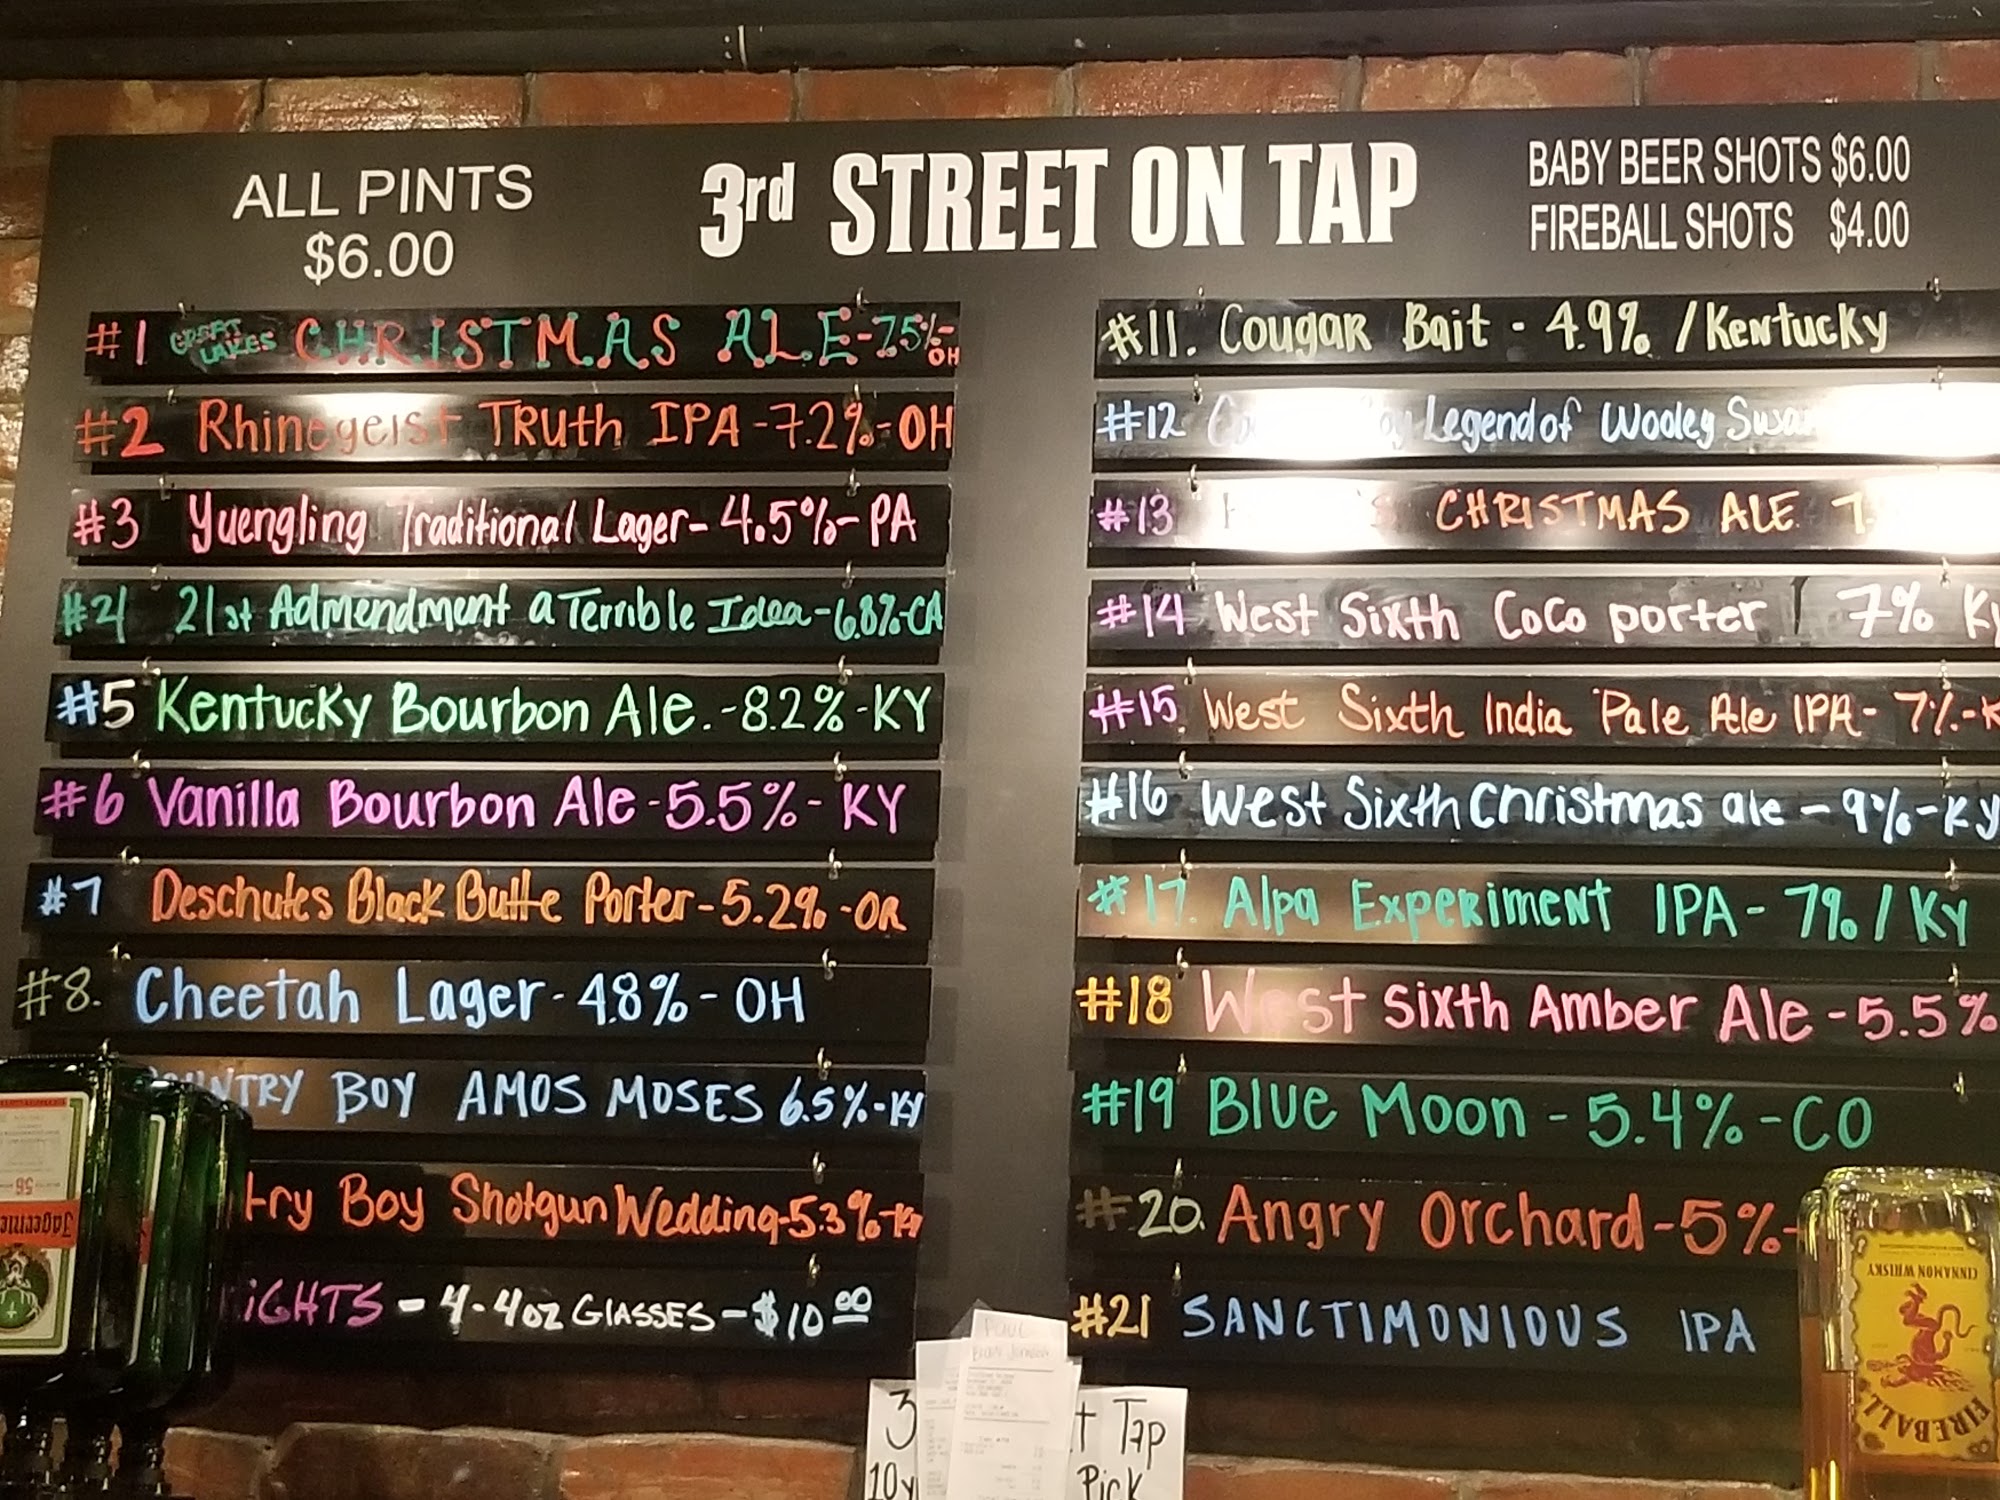 ALL PINTS
$6.00
3rd STREET ON TAP
BABY BEER SHOTS $6.00
FIREBALL SHOTS $4.00
#1 GREAT LAKES CHRISTMAS ALE-7.5%-OH
#2 Rhinegeist Truth IPA-7.2%-OH
#3 Yuengling Traditional Lager-4.5%-PA
#4 21st Admendment a Terrible Idea-6.8%-CA
#5 Kentucky Bourbon Ale.-8.2%-KY
#6 Vanilla Bourbon Ale-5.5%-KY
#7 Deschutes Black Butte Porter-5.2%-OR
#8. Cheetah Lager-4.8%-OH
BOY AMOS MOSES 6.5%-KY
Boy Shotgun Wedding-5.3%-KY
-4-4oz GLASSES-$10.00
#11. Cougar Bait-4.9%/Kentucky
#12 Legend of Wooley
#13 CHRISTMAS ALE
#14 West Sixth CoCo porter 7% Ky
#15. West Sixth India Pale Ale IPA-7%-K
#16 West Sixth Christmas ale-9%-KY
#17. Alpa Experiment IPA-7%/KY
#18 West Sixth Amber Ale-5.5%
#19 Blue Moon-5.4%-CO
#20. Angry Orchard-5%-
#21 SANCTIMONIOUS IPA
Tap
Pick
FIREBALL
CINNAMON WHISKY